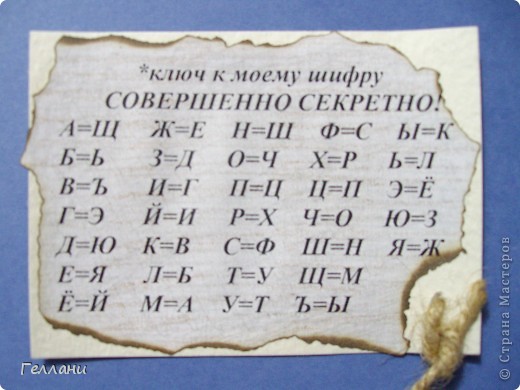 *ключ к моему шифру
СОВЕРШЕННО СЕКРЕТНО!
А=Щ Ж=Е Н=Ш Ф=С Ы=К
Б=Ь З=Д О=Ч Х=Р Ь=Л
В=Ъ И=Г П=Ц Ц=П Э=Ё
Г=Э Й=И Р=Х Ч=О Ю=З
Д=Ю К=В С=Ф Ш=Н Я=Ж
Е=Я Л=Б Т=У Щ=М
Ё=Й М=А У=Т Ъ=Ы
Геллани
© Страна Мастеров